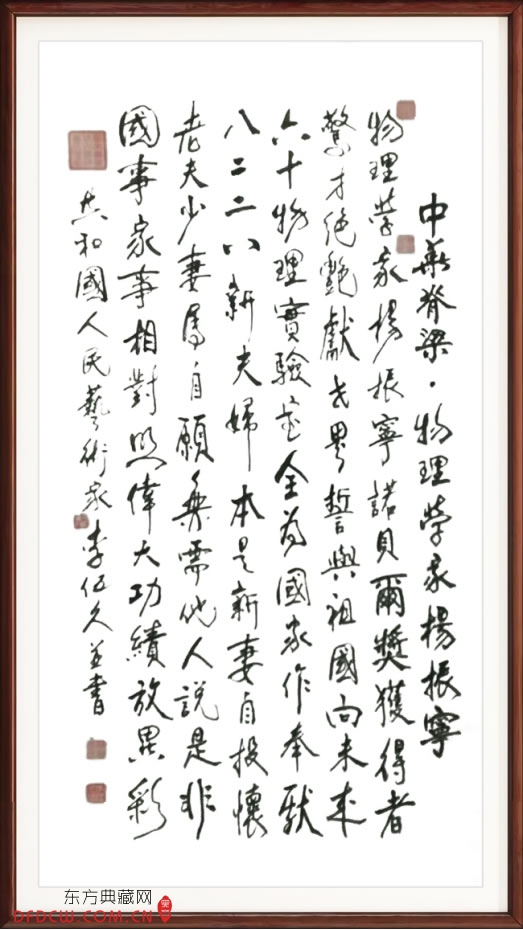 中華脊梁·物理學家楊振寧
物理學家楊振寧諾貝爾獎獲得者
驚才絕艷獻世界誓與祖國向未來
六十物理實驗室全為國家作奉獻
八二二八新夫婦本是新妻自投懷
老夫少妻属自願無需他人說是非
國事家事相對照偉大功績放異彩
共和國人民藝術家李伍久並書
东方典藏网
DFDCW.COM.CN